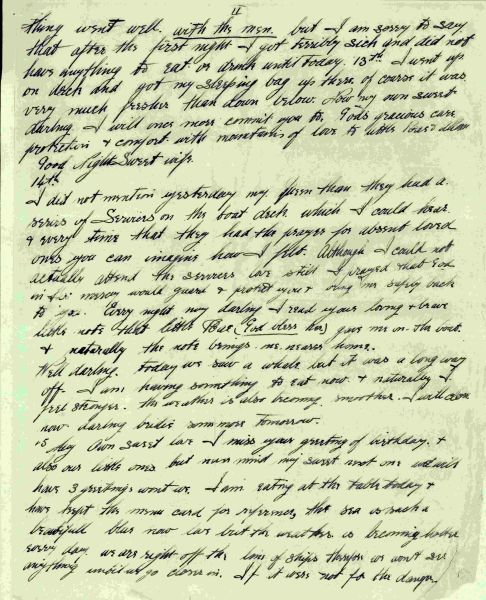 11
thing went well. with the men. but I am sorry to say
that after the first night I got terribly sick and did not
have anything to eat or drink until today. 13th I went up
on deck and got my sleeping bag up there. of course it was
very much fresher than down below. Now my own sweet
darling I will once more commit you to God's gracious care
protection & comfort with mountains of love to little
Good Night Sweet wife.
14th
I did not mention yesterday my Queen than they had a
series of Services on the boat deck which I could hear
& every time that they had the prayer for absent loved
ones you can imagine how I felt. Although I could not
actually attend the services love still I prayed that God
in his mercy would guard & protect you & bring me safely back
to you. Every night now darling I read your loving & brave
little note that little (God bless her) gave me on the boat.
& naturally the note brings me nearer home.
Well darling. today we saw a whale but it was a long way
off I am having something to eat now & naturally I
feel stronger. the weather is also becoming smoother. I will close
now darling bride some more tomorrow.
15 My Own sweet love I miss your greeting of birthday. &
also our little ones but never mind my sweet next one we will
have 3 greetings wont we. I am eating at the table today &
have kept the menu card for reference, the sea is such a
beautifull blue now love but the weather is becoming hotter
every day. we are right off the lane of ships therefore we won't see
anything until we go closer in. If it were not for the danger